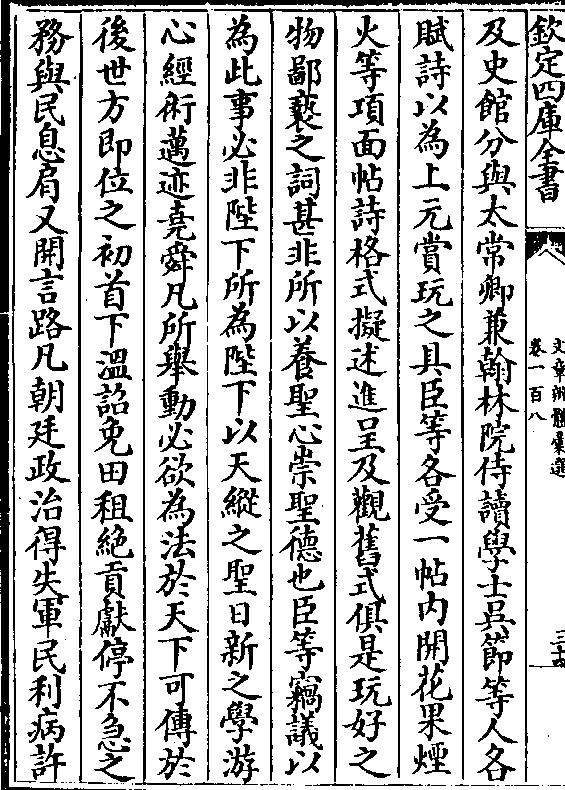 欽定四庫全書
文章辨體彙選
卷一百八
三十四
及史館分與太常卿兼翰林院侍讀學士吳節等人各
賦詩以為上元賞玩之具臣等各受一帖内開花果煙
火等項面帖詩格式擬述進呈及觀舊式俱是玩好之
物鄙䙝之詞甚非所以養聖心崇聖德也臣等竊議以
為此事必非陛下所為陛下以天縱之聖日新之學游
心經術邁迹堯舜凡所舉動必欲為法於天下可傳於
後世方即位之初首下温詔免田租絶貢獻停不急之
務與民息肩又開言路凡朝廷政治得失軍民利病許